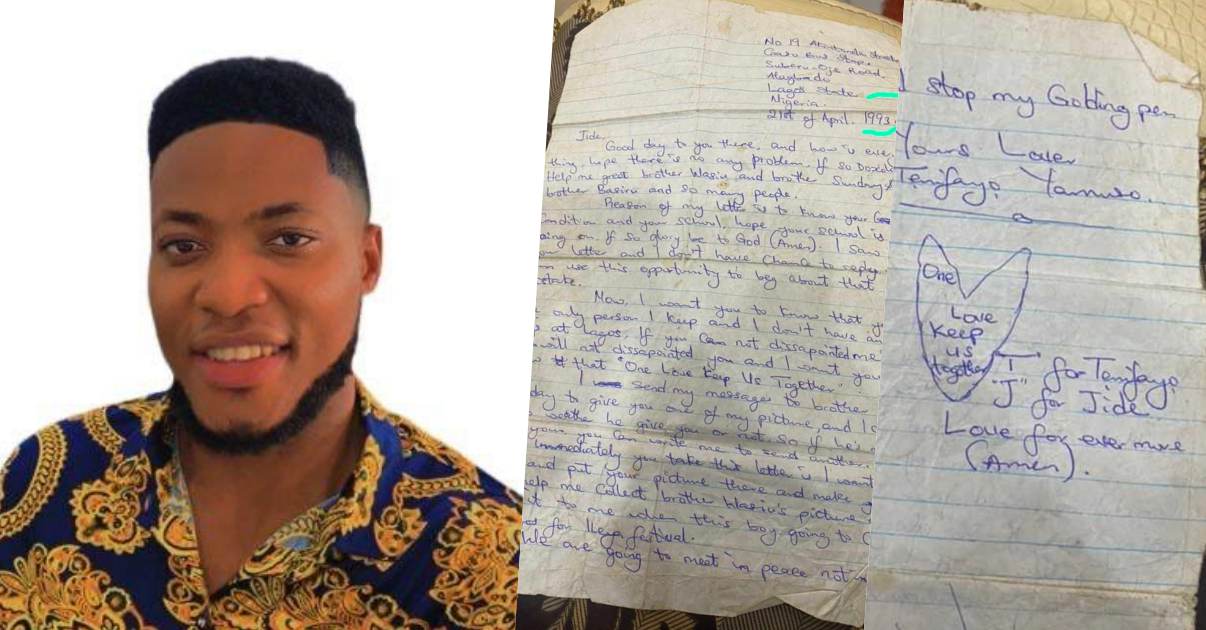 No 19
Road.
Lagos State
Nigeria.
21st of April. 1993.
Jide,
Good day to you there, and how is
thing, hope there is no any problem, If so
Help me great brother Wasiu and brother Sunday,
brother Basiru and so many people.
Reason of my letter is to know your
Condition and your school, hope your school is
going on. If so glory be to God (Amen). I saw
letter and I don't have Chance to reply
use this opportunity to beg about that
Now, I want you to know that
only person I keep and I don't have
at Lagos, If you Can not dissapointed me
will not dissapointed you and I want you
that "One Love Keep Us Together".
I send my messages to brother
day to give you one of my picture, and I
he give you or not so if he's
you Can write me to send another.
Immediately you take this letter is I want
and put your picture there and make
help me Collect brother Wasiu's picture
it to me when this boy going to
for Ileya festival.
We are going to meet in peace not
I stop my Golding pen
Yours Lover
Tenifayo Yamuso.
One
Love
Keep
us
together
"T" for Tenifayo
"J" for Jide
Love for ever more
(Amen).